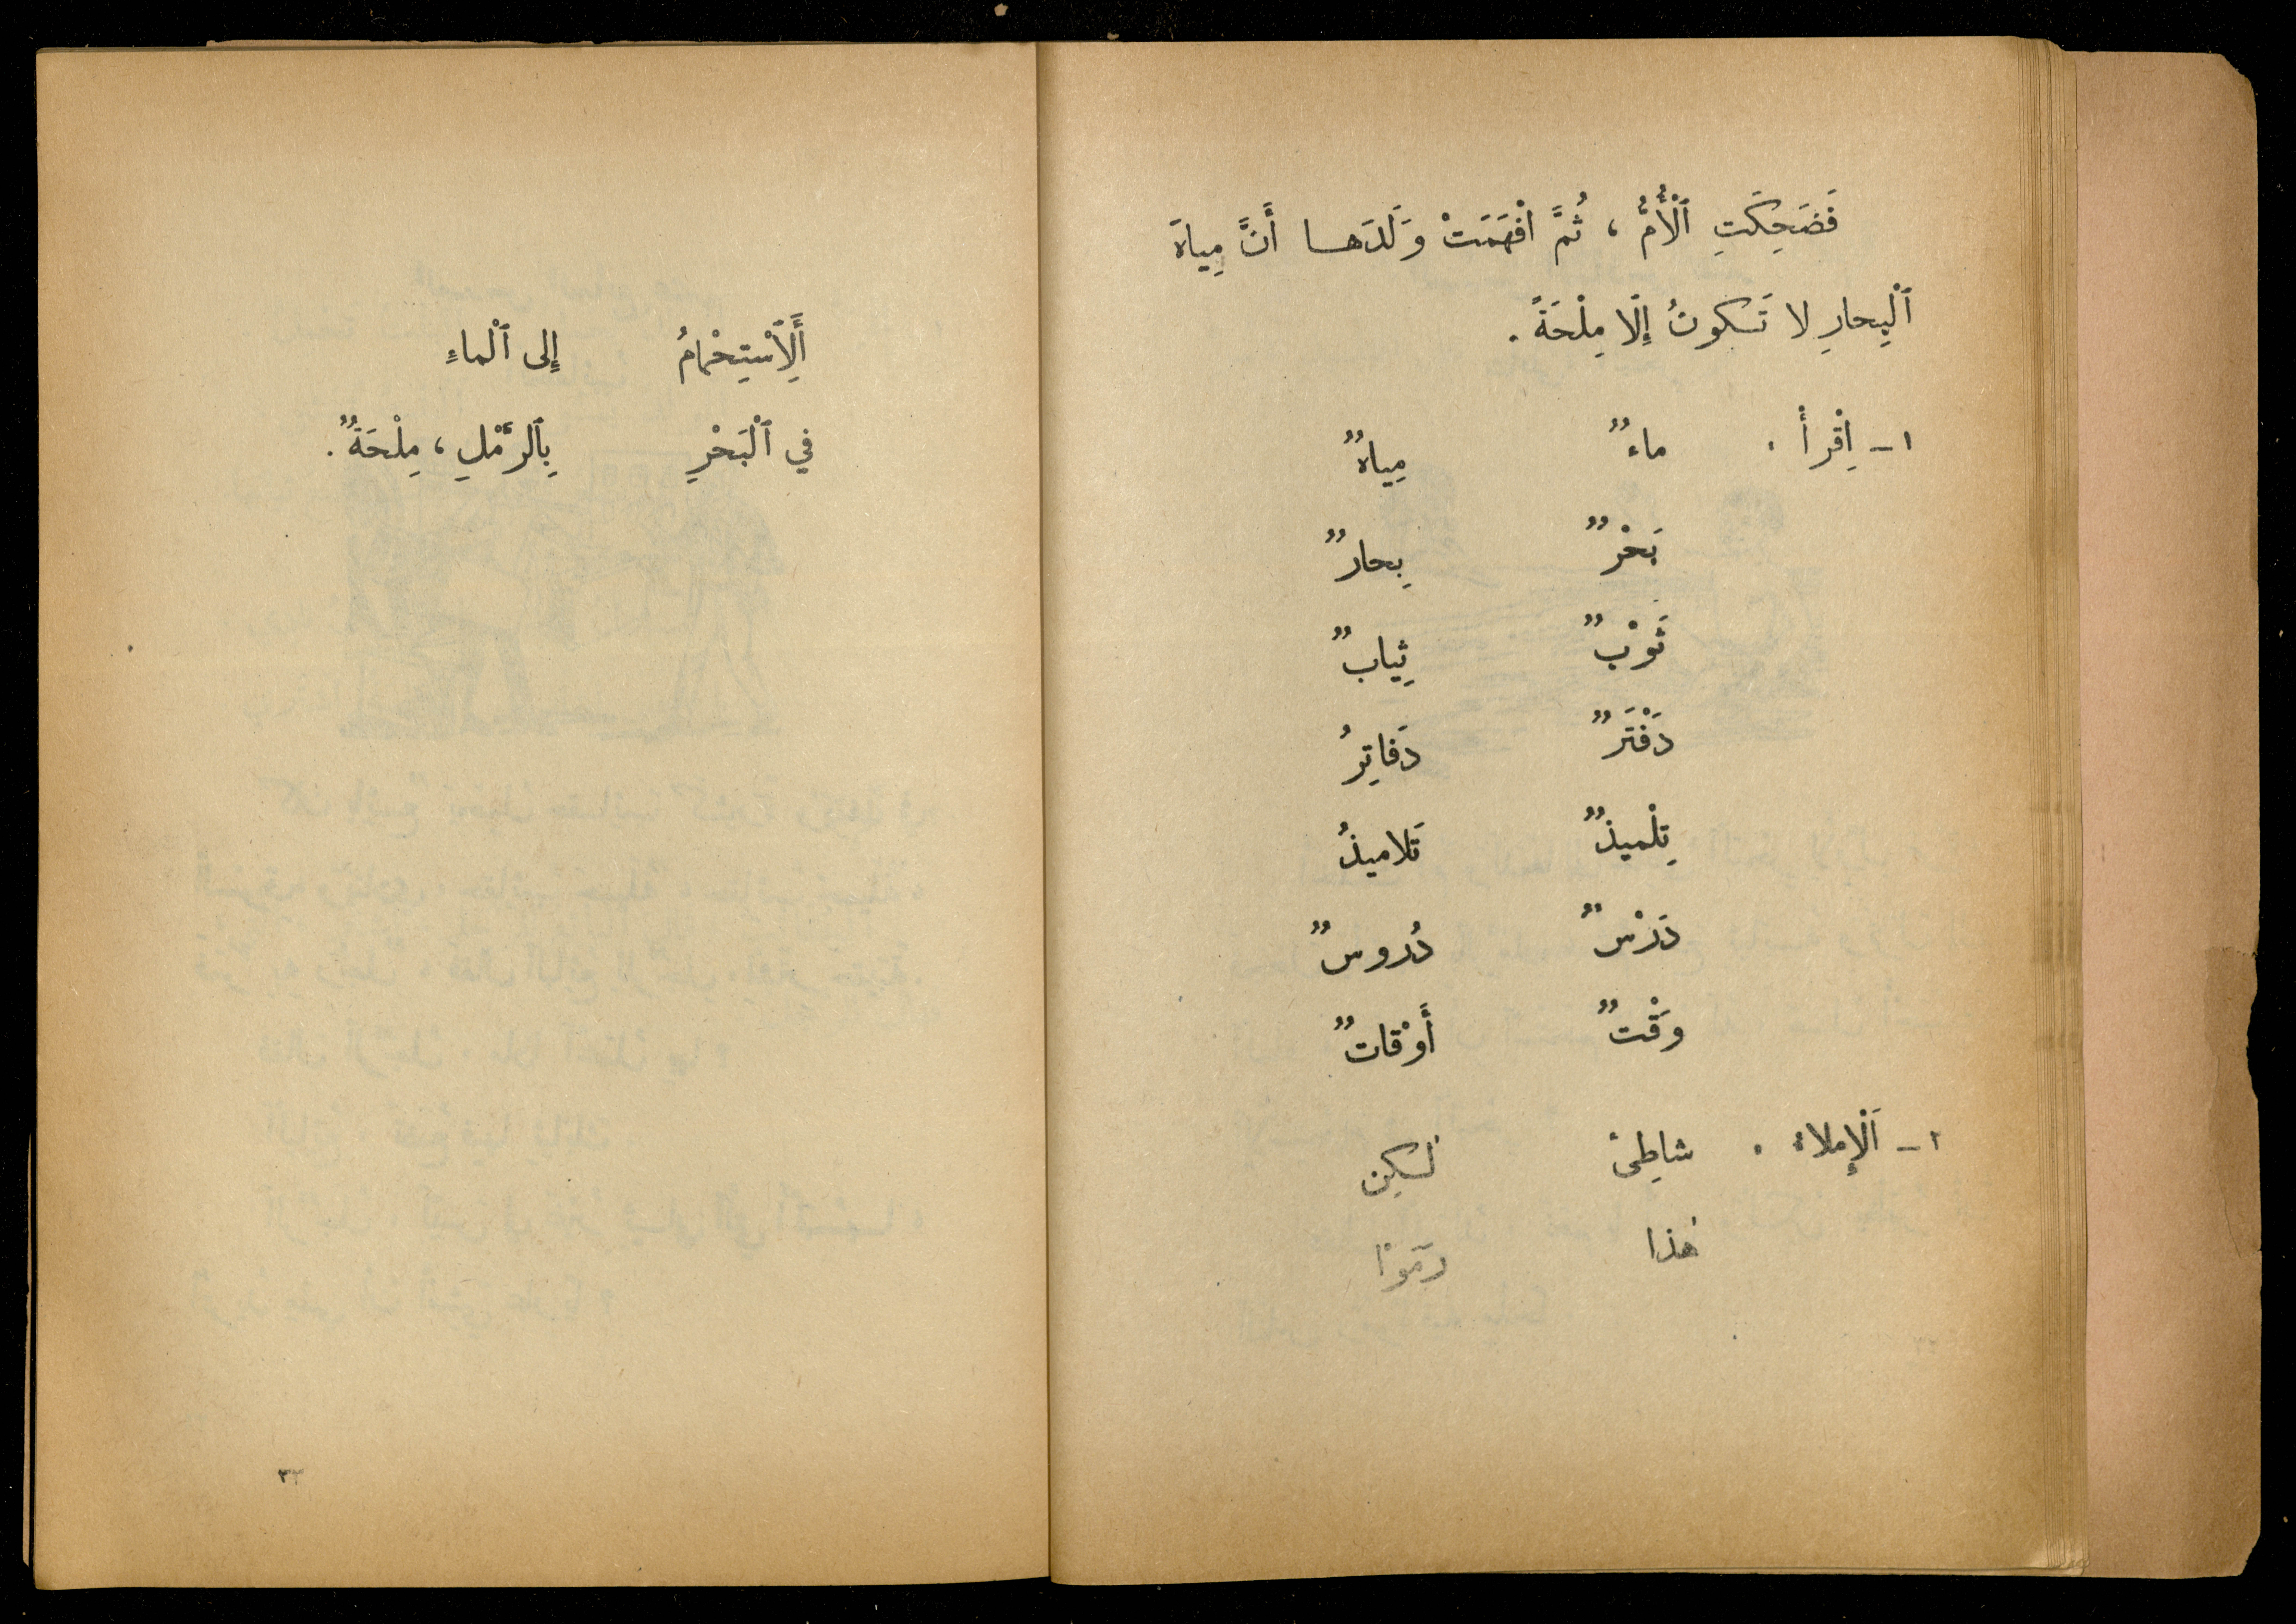 فَضَحِكَتِ ٱلْأُمُّ ، ثُمَّ افْهَمَتْ وَلَدَهـــا أَنَّ مِياهَ
ٱلْبِحارِ لا تَكونُ إِلّا مِلْحَةً .
١ – اِقْرأْ . ماءٌ مِياهٌ
بَحْرٌ بِحارٌ
ثَوْبٌ ثِيابٌ
دَفْتَرٌ دَفاتِرُ
تِلْميذٌ تَلاميذُ
دَرْسٌ دُروسٌ
وَقْتٌ أَوْقاتٌ
٢ – اَلْإِملاءُ . شاطِئ لٰكِن
هٰذا رَمَوْا
أَلِٱسْتِحْمامُ إِلى ٱلْماءِ
في ٱلْبَحْرِ بِٱلرَّمْلِ ، مِلْحَةٌ .
٣٣